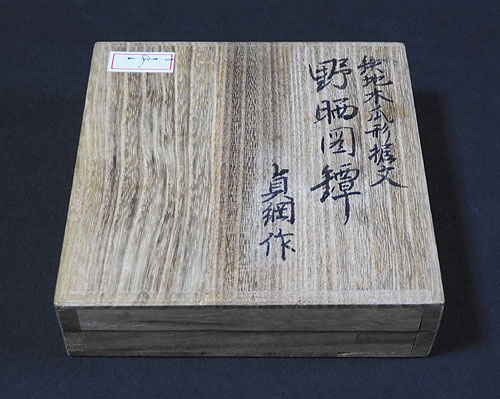 鉄地木瓜形据文
野晒図鐔
貞綱作